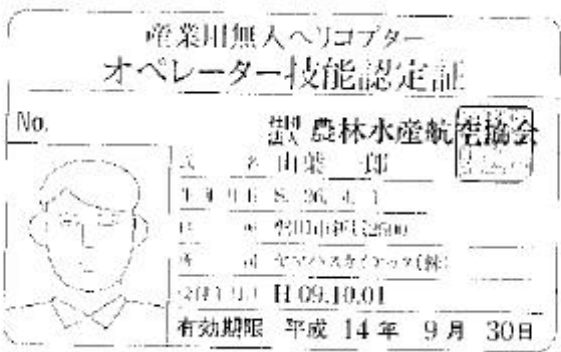 産業用無人ヘリコプター
オペレーター技能認定証
No.
社団法人 農林水産航空協会
氏 名 山葉 一郎
生年月日 S. 26. 4. 1
住 所 磐田市新貝2500
所 司 ヤマハスカイテック(株)
H 09.10.01
有効期限 平成 14 年 9 月 30日